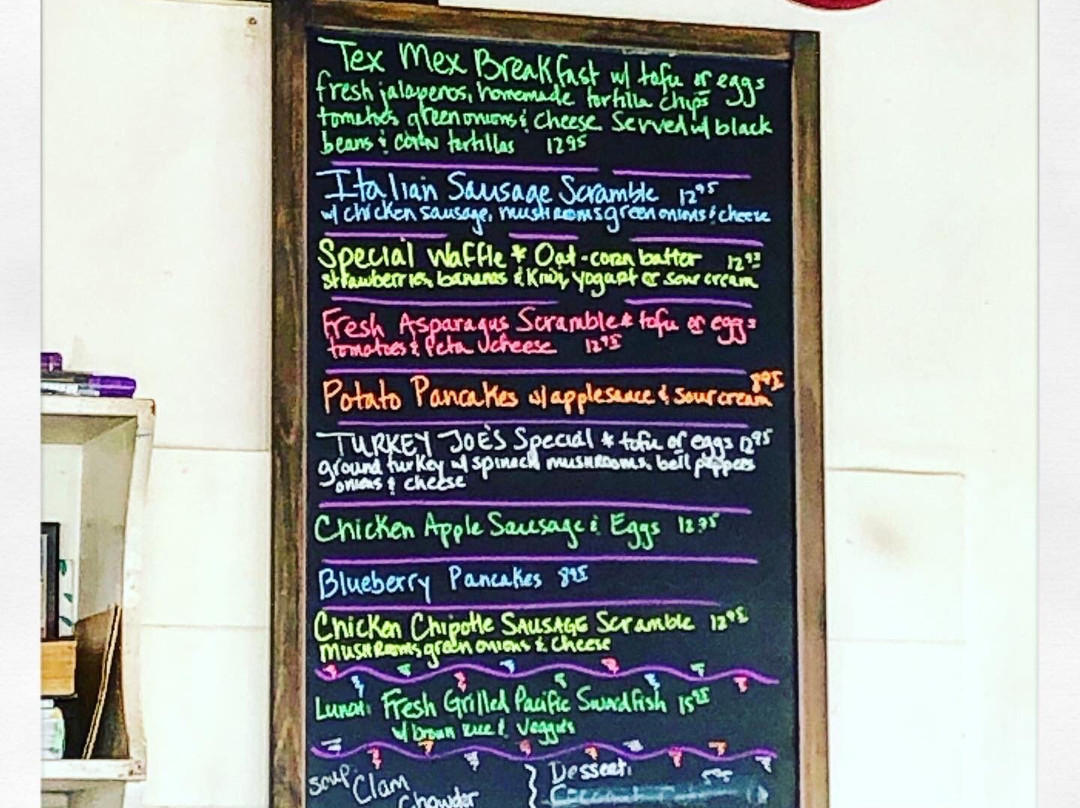 Tex Mex Breakfast w/ tofu or eggs
fresh jalapenos, homemade tortilla chips
tomatoes green onions & cheese Served w/ black
beans & corn tortillas 12 95
Italian Sausage Scramble 12 95
w/ chicken sausage, mushrooms green onions & cheese
Special Waffle * Oat-corn batter 12 95
strawberries, bananas & Kiwi, yogart or sour cream
Fresh Asparagus Scramble * tofu or eggs
tomatoes & feta cheese 12 95
Potato Pancakes w/ applesauce & sour cream 8 95
TURKEY JOE'S Special * tofu or eggs 12 95
ground turkey w/ spinach mushrooms, bell peppers
onions & cheese
Chicken Apple Sausage & Eggs 12 95
Blueberry Pancakes 8 95
Chicken Chipotle SAUSAGE Scramble 12 95
Mushrooms, green onions & cheese
Lunch: Fresh Grilled Pacific Swordfish 15 95
w/ brown rice & veggies
Soup: Clam Dessert:
Chowder